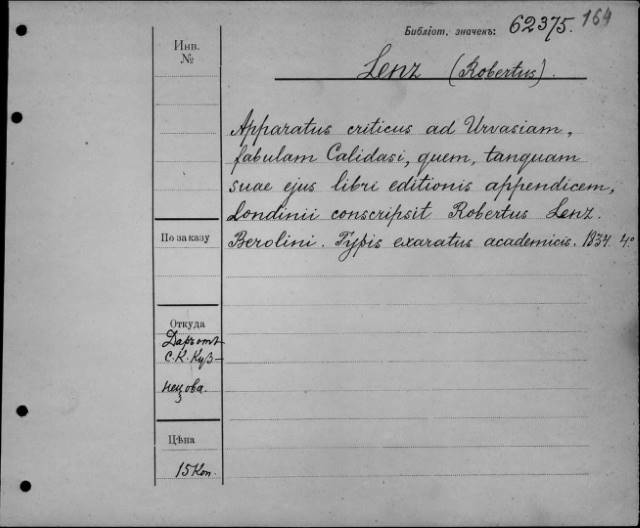 164
Библіот. значекъ: 62375.
Инв.
№
Lenz (Robertus).
Apparatus criticus ad Urvasiam,
fabulam Calidasi, quem, tanquam
suae ejus libri editionis appendicem,
Londinii conscripsit Robertus Lenz.
По заказу
Berolini. Typis exaratus academicis. 1834. 4º
Откуда
Даръ отъ
С. К. Куз-
нецова.
Цѣна
15 коп.